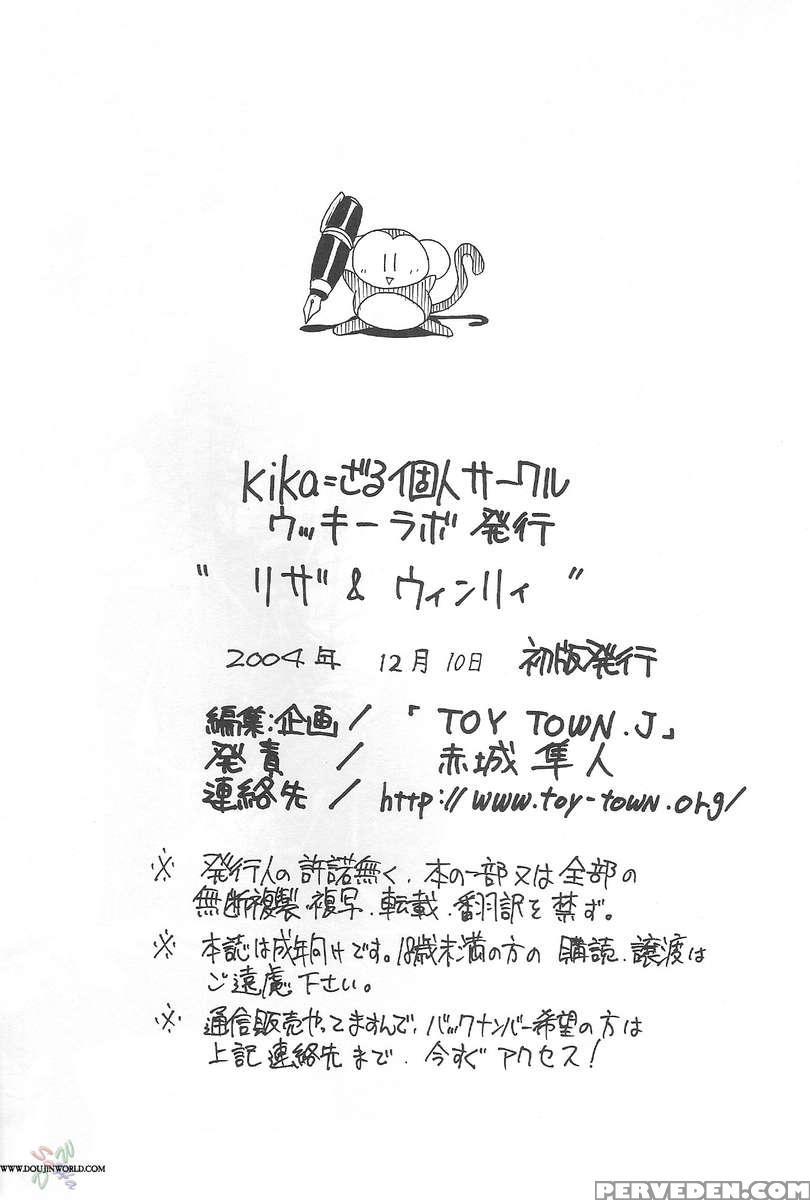 kika=ざる個人サークル
ウッキーラボ 発行
" リザ & ウィンリィ "
2004年 12月 10日 初版発行
編集:企画 / 「TOY TOWN.J」
発責 / 赤城 隼人
連絡先 / http://www.toy-town.org/
※ 発行人の許諾無く、本の一部又は全部の
無断複製、複写、転載、翻訳を禁ず。
※ 本誌は成年向けです。18歳未満の方の 購読、譲渡は
ご遠慮下さい。
※ 通信販売やってますんで、バックナンバー希望の方は
上記連絡先まで、今すぐアクセス!
WWW.DOUJINWORLD.COM
PERVEDEN.COM